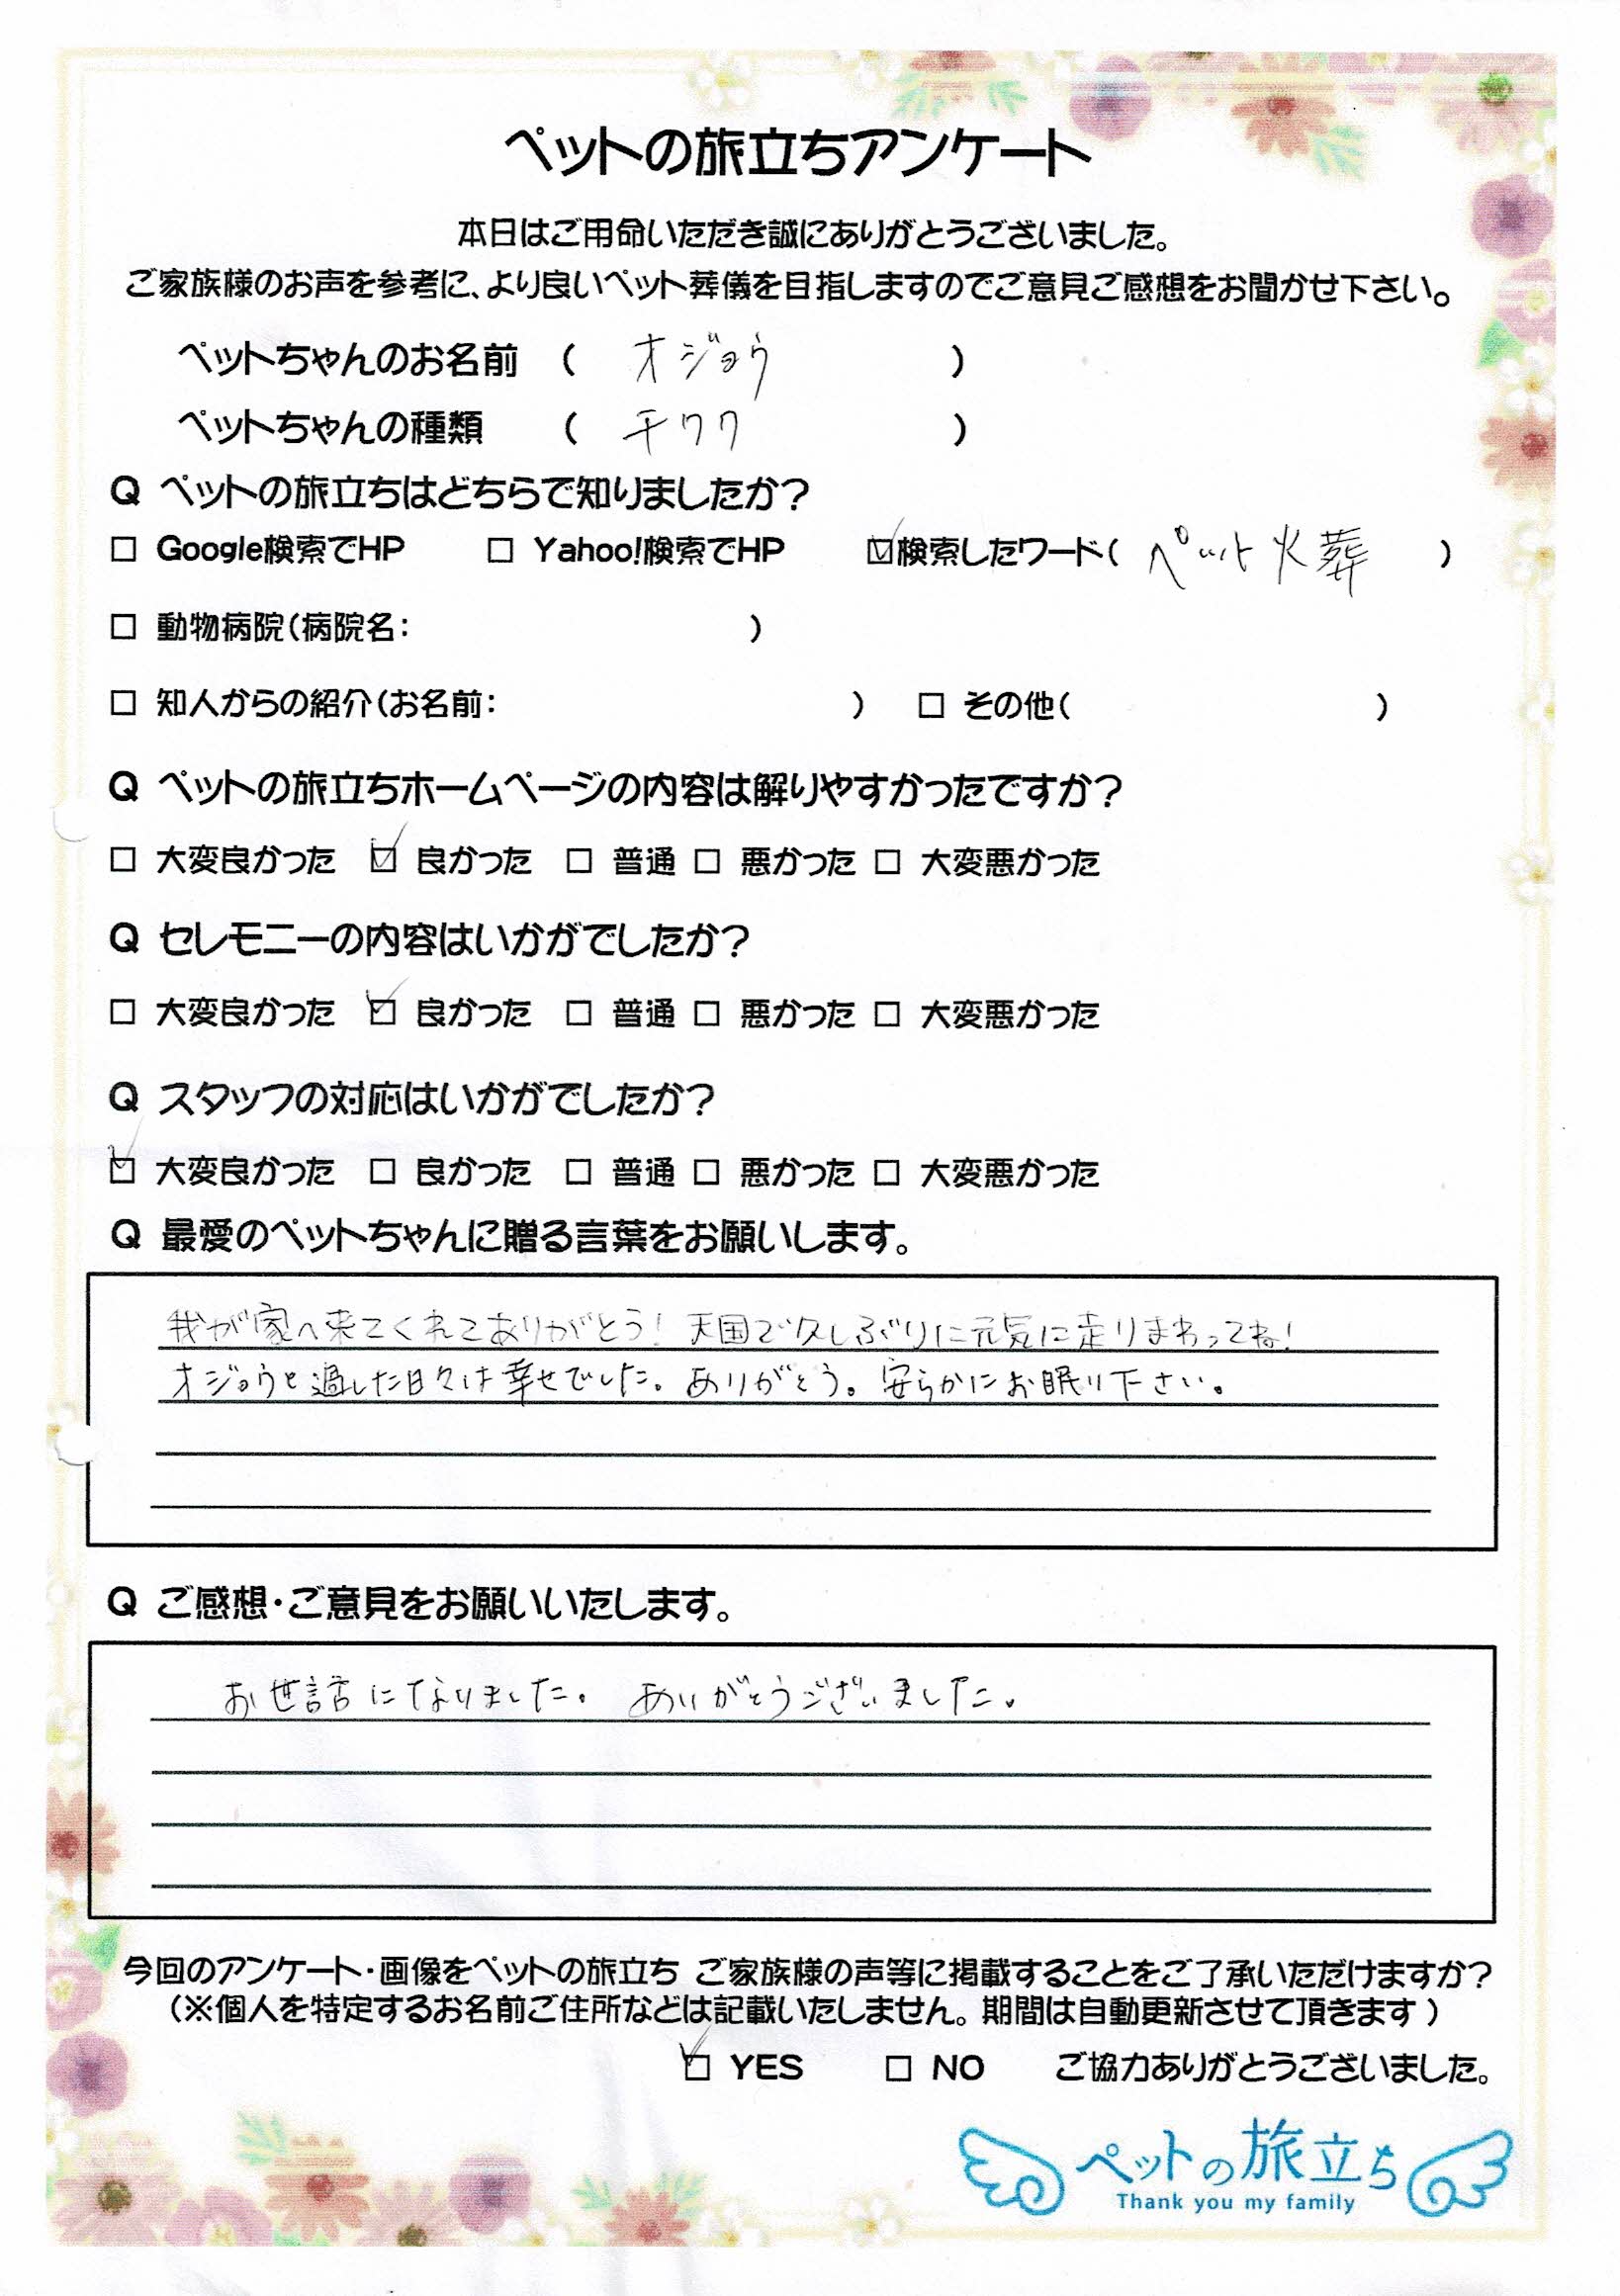 ペットの旅立ちアンケート
本日はご用命いただき誠にありがとうございました。
ご家族様のお声を参考に、より良いペット葬儀を目指しますのでご意見ご感想をお聞かせ下さい。
ペットちゃんのお名前 ( オジョウ )
ペットちゃんの種類 ( チワワ )
Q ペットの旅立ちはどちらで知りましたか?
□ Google検索でHP □ Yahoo!検索でHP ☑検索したワード( ペット火葬 )
□ 動物病院(病院名: )
□ 知人からの紹介(お名前: ) □ その他( )
Q ペットの旅立ちホームページの内容は解りやすかったですか?
□ 大変良かった ☑ 良かった □ 普通 □ 悪かった □ 大変悪かった
Q セレモニーの内容はいかがでしたか?
□ 大変良かった ☑ 良かった □ 普通 □ 悪かった □ 大変悪かった
Q スタッフの対応はいかがでしたか?
☑ 大変良かった □ 良かった □ 普通 □ 悪かった □ 大変悪かった
Q 最愛のペットちゃんに贈る言葉をお願いします。
我が家へ来てくれてありがとう! 天国で久しぶりに元気に走りまわってね!
オジョウと過した日々は幸せでした。ありがとう。安らかにお眠り下さい。
Q ご感想・ご意見をお願いいたします。
お世話になりました。 ありがとうございました。
今回のアンケート・画像をペットの旅立ち ご家族様の声等に掲載することをご了承いただけますか?
(※個人を特定するお名前ご住所などは記載いたしません。期間は自動更新させて頂きます)
☑ YES □ NO ご協力ありがとうございました。
ペットの旅立ち
Thank you my family